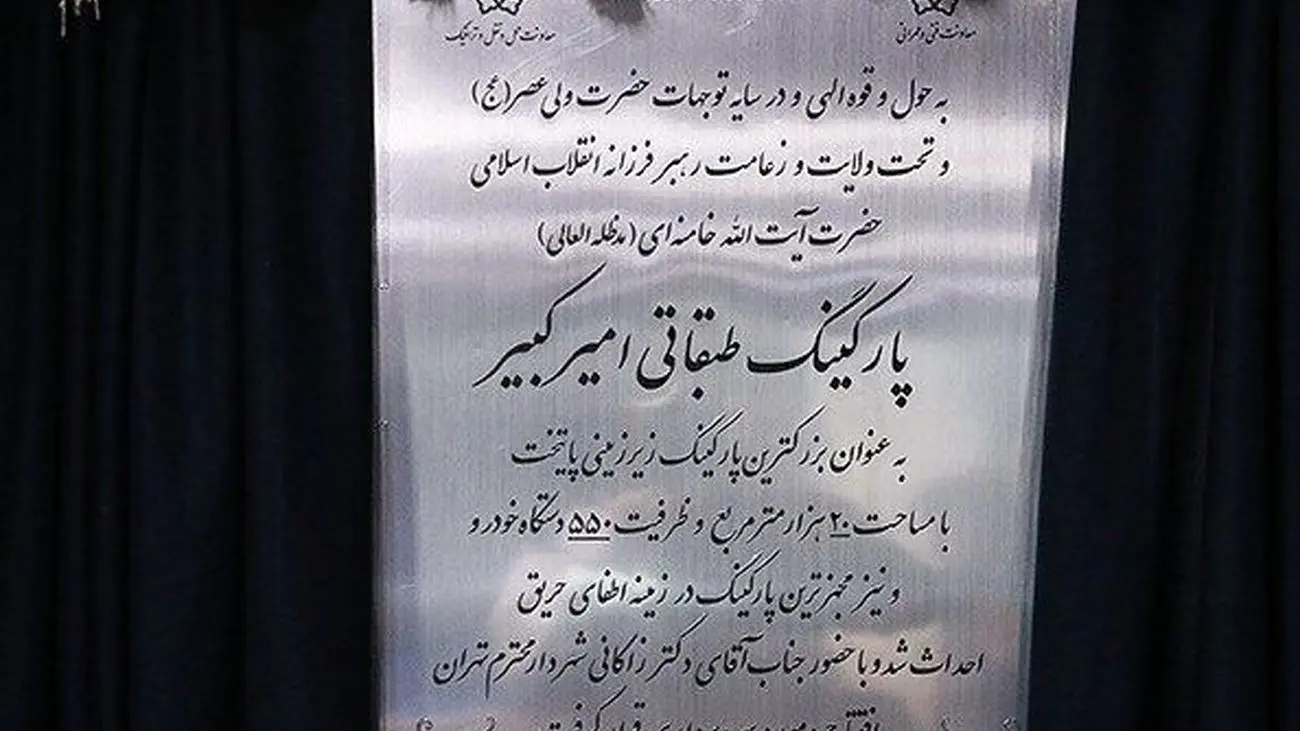 معاونت فنی و عمرانی
معاونت حمل و نقل و ترافیک
به حول و قوه الهی و در سایه توجهات حضرت ولی عصر(عج)
و تحت ولایت و زعامت رهبر فرزانه انقلاب اسلامی
حضرت آیت الله خامنه ای (مدظله العالی)
پارکینگ طبقاتی امیرکبیر
به عنوان بزرگترین پارکینگ زیرزمینی پایتخت
با مساحت ۲۰ هزار متر مربع و ظرفیت ۵۵۰ دستگاه خودرو
و نیز مجهزترین پارکینگ در زمینه اطفای حریق
احداث شد و با حضور جناب آقای دکتر زاکانی شهردار محترم تهران